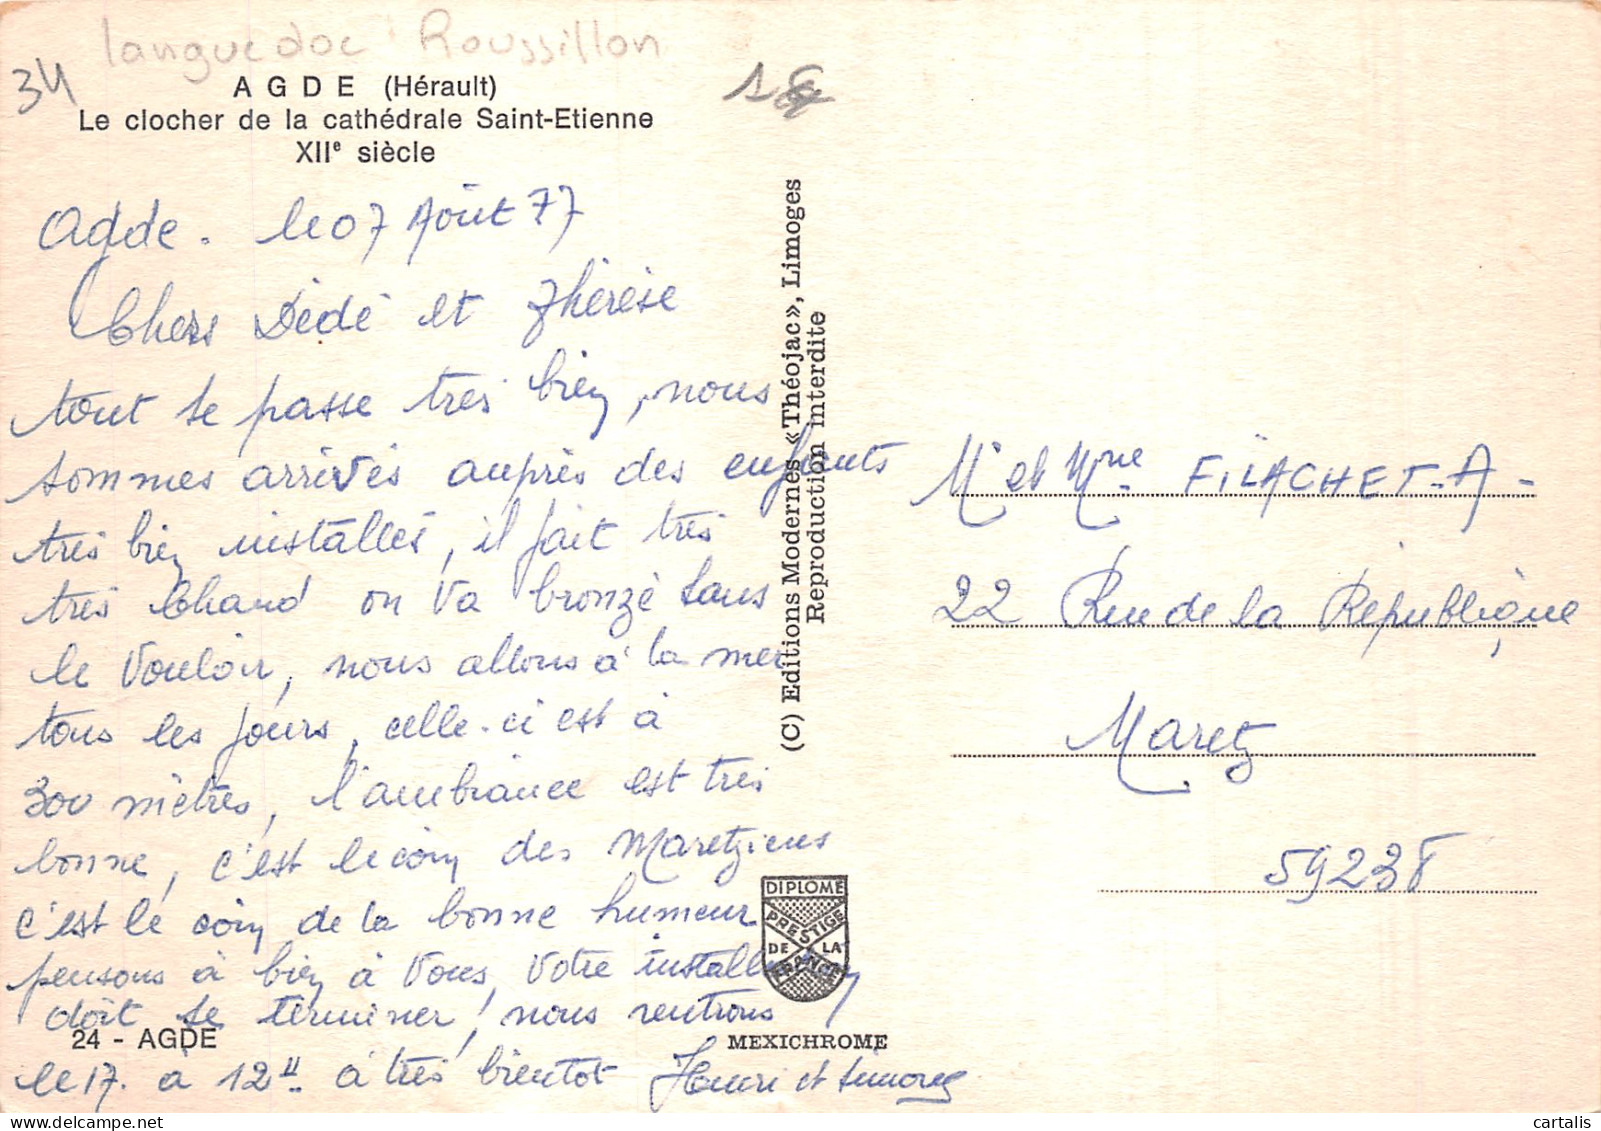 languedoc Roussillon
34
AGDE (Hérault)
Le clocher de la cathédrale Saint-Etienne
XIIe siècle
Agde. le 07 Août 77
Chers Dédé et Thérèse
tout se passe très bien, nous
sommes arrivés auprès des enfants
très bien installés, il fait très
très chaud on va bronzé sans
le vouloir, nous allons à la mer
tous les jours, celle-ci est à
300 mètres, l'ambiance est très
bonne, c'est le coin des Maretziens
c'est le coin de la bonne humeur
pensons à bien à vous, votre installation
doit se terminer, nous rentrons
le 17. à 12H à très bientôt Henri et
24 - AGDE
(C) Editions Modernes «Théojac», Limoges
Reproduction interdite
DIPLOME
PRESTIGE
DE LA
FRANCE
MEXICHROME
Mr et Mme FiLACHET-A-
22 Rue de la République,
Maretz
59238
cartalis